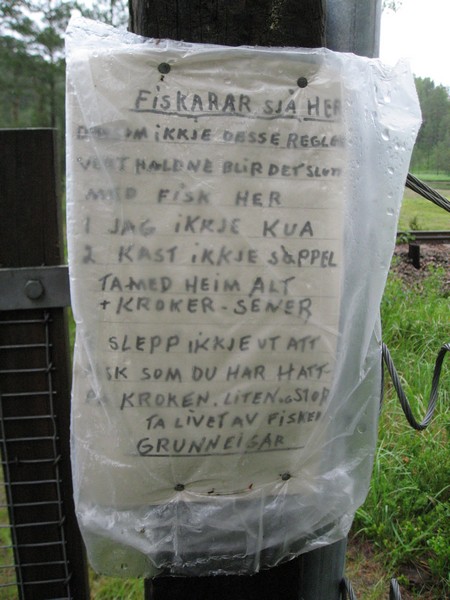 FISKARAR SJÅ HER
DERSOM IKKJE DESSE REGLER
VERT HALDNE BLIR DET SLUTT
MED FISK HER
1 JAG IKKJE KUA
2 KAST IKKJE SØPPEL
TA MED HEIM ALT
+ KROKER - SENER
SLEPP IKKJE UT ATT
SK SOM DU HAR HATT
PÅ KROKEN. LITEN OG STOR
TA LIVET AV FISKEN
GRUNNEIGAR